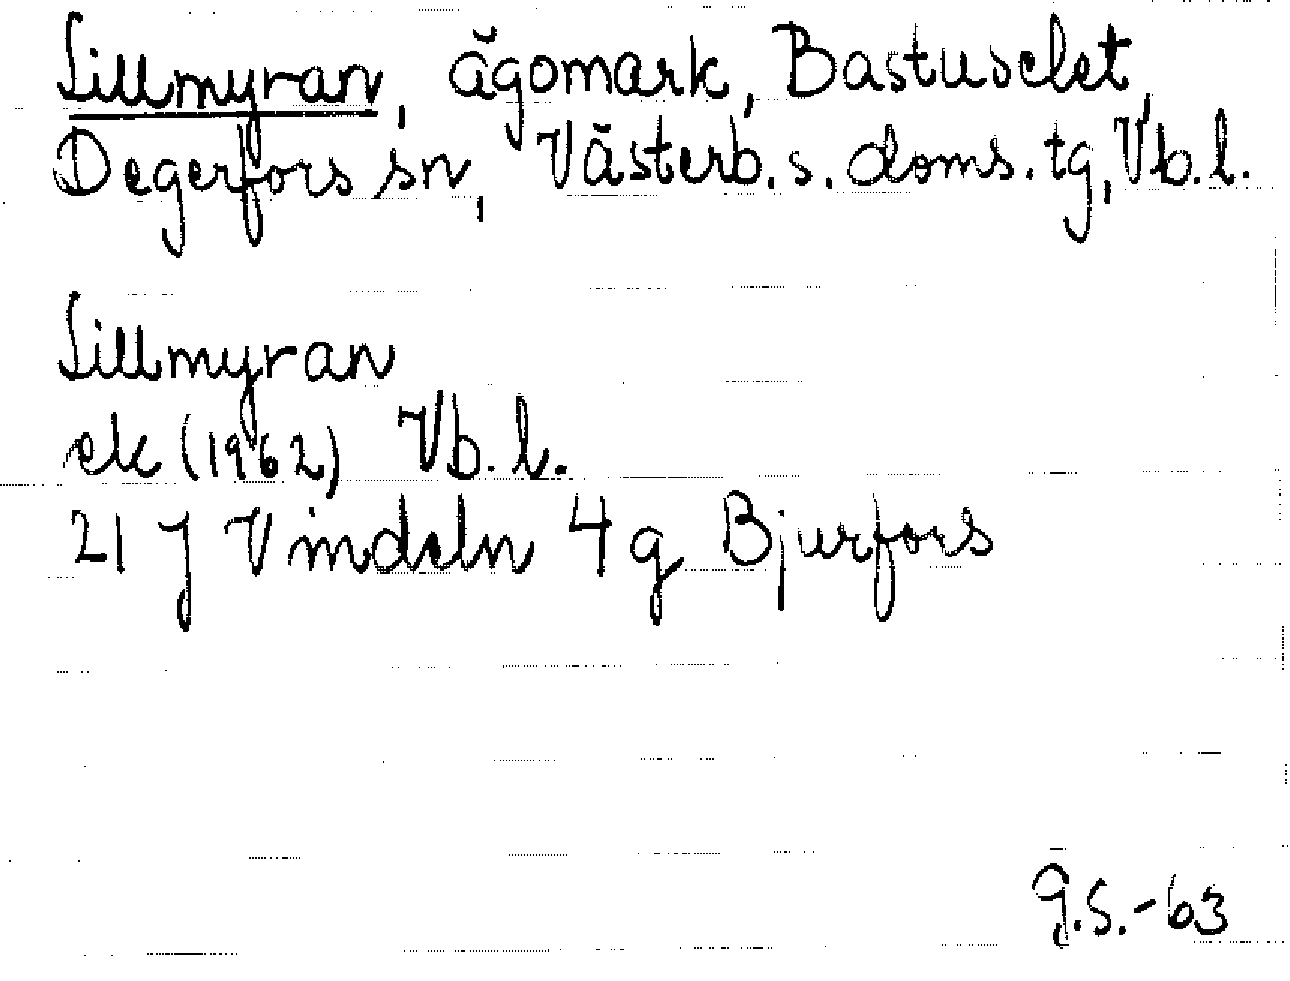 Sillmyran, ägomark, Bastuselet,
Degerfors sn, Västerb. s. doms. tg, Vb. l.
Sillmyran
ek (1962) Vb. l.
21 J Vindeln 4 g Bjurfors
G.S.-63